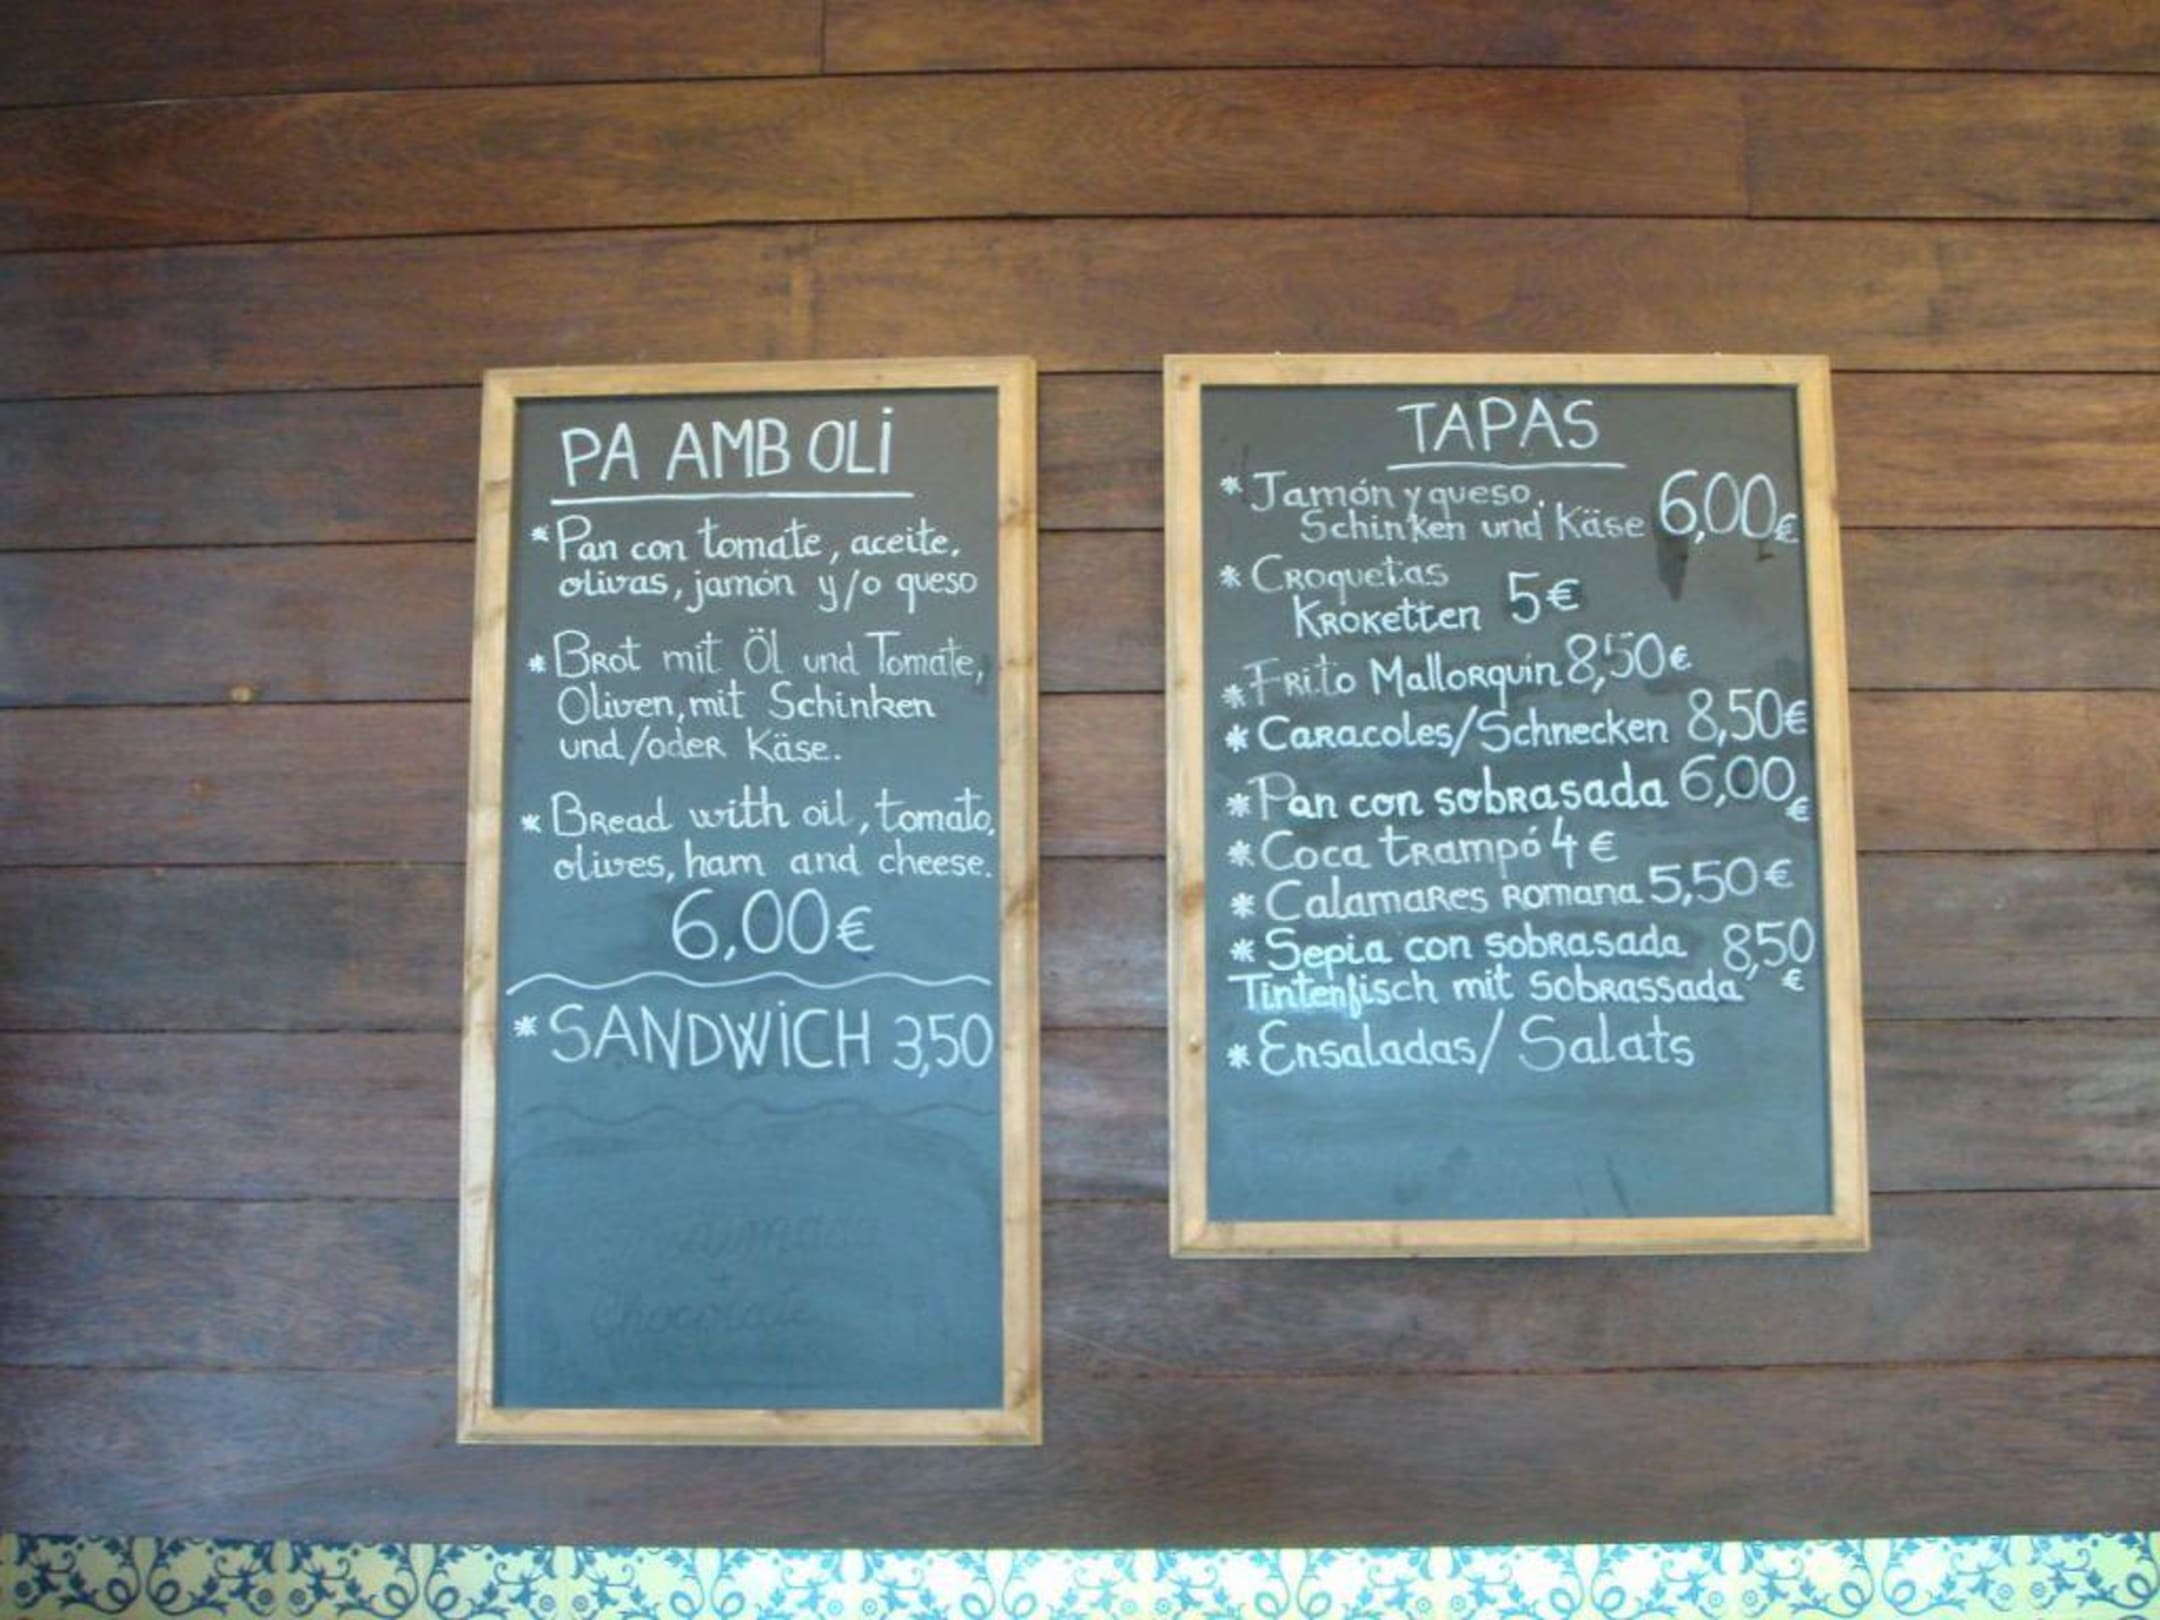 PA AMB OLI
* Pan con tomate, aceite,
olivas, jamón y/o queso
* Brot mit Öl und Tomate,
Oliven, mit Schinken
und/oder Käse.
* Bread with oil, tomato,
olives, ham and cheese.
6,00€
* SANDWICH 3,50
Chocolate
TAPAS
* Jamón y queso.
Schinken und Käse 6,00€
* Croquetas
Kroketten 5€
* Frito Mallorquín 8,50€
* Caracoles/Schnecken 8,50€
* Pan con sobrasada 6,00€
* Coca trampó 4€
* Calamares romana 5,50€
* Sepia con sobrasada 8,50
Tintenfisch mit Sobrassada €
* Ensaladas/Salats